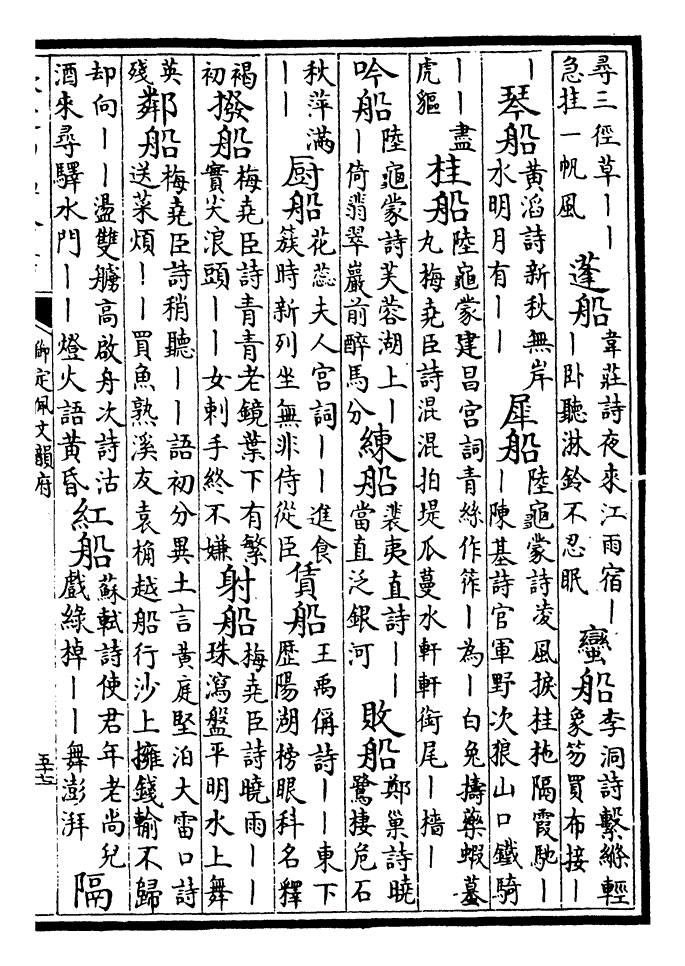 尋三徑草丨丨
急挂一帆風
蓬船
韋莊詩夜來江雨宿丨
丨卧聽淋鈴不忍眠
蠻船
李洞詩繫縧輕
象笏買布接丨
丨
琴船
黃滔詩新秋無岸
水明月有丨丨
犀船
陸龜蒙詩凌風捩桂柂隔霞馳丨
丨陳基詩官軍野次狼山口鐵騎
丨丨盡
虎軀
桂船
陸龜蒙建昌宮詞青絲作筰丨為丨白兔擣藥蝦蟇
丸梅堯臣詩混混拍堤瓜蔓水軒軒銜尾丨檣丨
吟船
陸龜蒙詩芙蓉湖上丨
丨倚翡翠巖前醉馬分
練船
裴夷直詩丨丨
當直泛銀河
敗船
鄭巢詩曉
鷺棲危石
秋萍滿
丨丨
厨船
花蕊夫人宮詞丨丨進食
簇時新列坐無非侍從臣
賃船
王禹偁詩丨丨東下
歷陽湖榜眼科名釋
褐
初
撥船
梅堯臣詩青青老鏡葉下有繁
實尖浪頭丨丨女刺手終不嫌
射船
梅堯臣詩曉雨丨丨
珠瀉盤平明水上舞
英
殘
鄰船
梅堯臣詩稍聽丨丨語初分異土言黃庭堅泊大雷口詩
送菜煩丨丨買魚熟溪友袁桷越船行沙上擁錢輸不歸
却向丨丨盪雙艣高啟舟次詩沽
酒來尋驛水門丨丨燈火語黃昏
紅船
蘇軾詩使君年老尚兒
戲綠棹丨丨舞澎湃
隔
御定佩文韻府
五十七